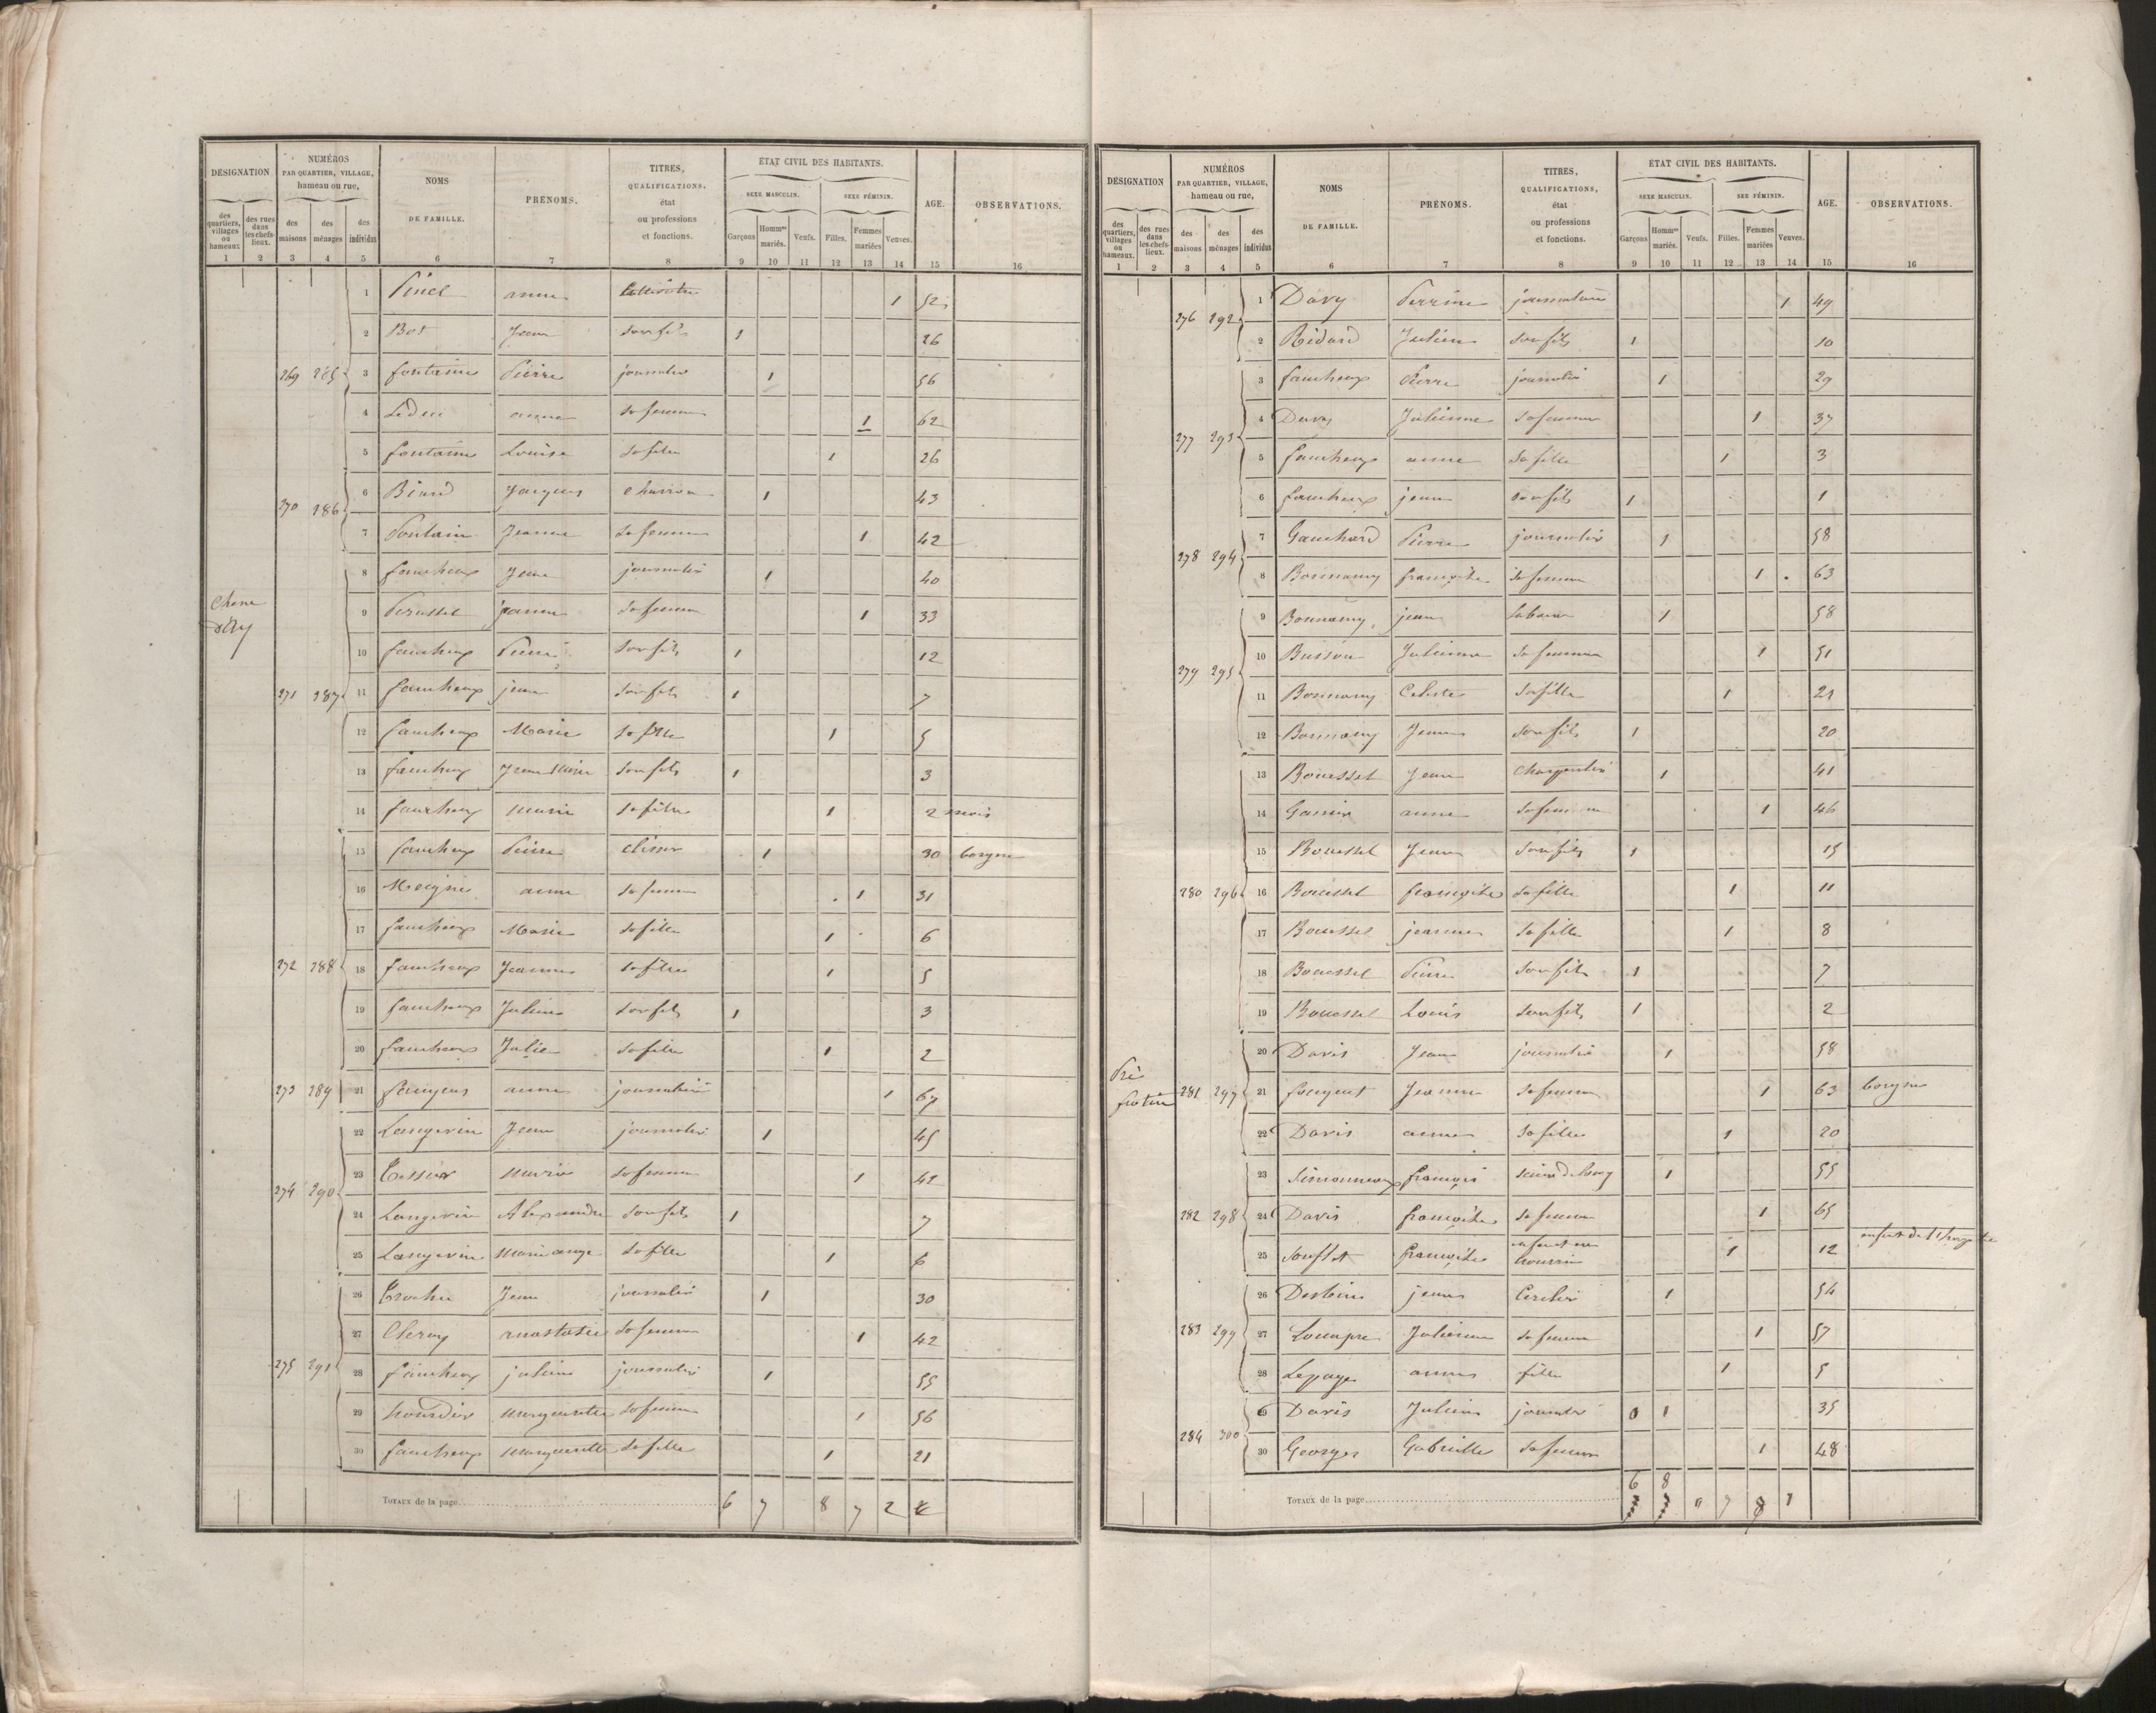 DÉSIGNATION
NUMÉROS
PAR QUARTIER, VILLAGE,
hameau ou rue,
NOMS
DE FAMILLE.
PRÉNOMS.
TITRES,
QUALIFICATIONS,
état
ou professions
et fonctions.
ÉTAT CIVIL DES HABITANTS.
SEXE MASCULIN.
SEXE FÉMININ.
AGE.
OBSERVATIONS.
des quartiers, villages ou hameaux
des rues dans les chefs-lieux.
des maisons
des ménages
des individus
Garçons
Hommes mariés.
Veufs.
Filles.
Femmes mariées
Veuves.
1 2 3 4 5 6 7 8 9 10 11 12 13 14 15 16
Chene
1 Pinel anne 1 52
2 Bos Jean son fils 1 26
269 285 3 fontaine Pierre journalier 1 56
4 Leduc anne sa femme 1 62
5 fontaine Louise sa fille 1 26
270 286 6 Biard Jacques charron 1 43
7 Pontain Jeanne sa femme 1 42
8 faucheux Jean journalier 1 40
9 Perussel jeanne sa femme 1 33
10 faucheux Pierre son fils 1 12
271 287 11 faucheux jean son fils 1 7
12 faucheux Marie sa fille 1 5
13 faucheux Jean Marie son fils 1 3
14 faucheux marie sa fille 1 2 mois
15 faucheux Pierre 1 30 borgne
16 anne sa femme 1 31
17 faucheux Marie sa fille 1 6
272 288 18 faucheux Jeanne sa fille 1 5
19 faucheux Julien son fils 1 3
20 faucheux Julie sa fille 1 2
273 289 21 anne journalière 1 67
22 Langevin Jean journalier 1 45
274 290 23 Tessier marie sa femme 1 42
24 Langevin Alexandre son fils 1 7
25 Langevin Marie ange sa fille 1 6
26 Trochu Jean journalier 1 30
27 Cleroy anastasie sa femme 1 42
275 291 28 faucheux julien journalier 1 55
29 hourdier marguerite sa femme 1 56
30 faucheux marguerite sa fille 1 21
TOTAUX de la page 6 7 8 7 2
DÉSIGNATION
NUMÉROS
PAR QUARTIER, VILLAGE,
hameau ou rue,
NOMS
DE FAMILLE.
PRÉNOMS.
TITRES,
QUALIFICATIONS,
état
ou professions
et fonctions.
ÉTAT CIVIL DES HABITANTS.
SEXE MASCULIN.
SEX FÉMININ.
AGE.
OBSERVATIONS.
des quartiers, villages ou hameaux.
des rues dans les chefs-lieux.
des maisons
des ménages
des individus
Garçons
Hommes mariés.
Veufs.
Filles.
Femmes mariées
Veuves.
1 2 3 4 5 6 7 8 9 10 11 12 13 14 15 16
276 292 1 Davy Perrine journalière 1 49
2 Ridard Julien son fils 1 10
3 faucheux Pierre journalier 1 29
277 293 4 Davy Julienne sa femme 1 37
5 faucheux anne sa fille 1 3
6 faucheux jean son fils 1 1
278 294 7 Gauchard Pierre journalier 1 58
8 Bonnamy françoise sa femme 1 63
9 Bonnamy jean laboureur 1 58
279 295 10 Busson Julienne sa femme 1 51
11 Bonnamy Celeste sa fille 1 21
12 Bonnamy Jean son fils 1 20
13 Bouessel Jean charpentier 1 41
14 Garnier anne sa femme 1 46
15 Bouessel Jean son fils 1 15
280 296 16 Bouessel françoise sa fille 1 11
17 Bouessel jeanne sa fille 1 8
18 Bouessel Pierre son fils 1 7
19 Bouessel Louis son fils 1 2
Pré
20 Davis Jean journalier 1 58
281 297 21 Jeanne sa femme 1 63 borgne
22 Davis anne sa fille 1 20
23 Simonneaux françois scieur de long 1 55
282 298 24 Davis françoise sa femme 1 65
25 Soufflet françoise enfant en nourrice 1 12
26 Desbins jean Cerclier 1 54
283 299 27 Loucapre Julienne sa femme 1 57
28 Lepage anne fille 1 5
29 Davis Julien journalier 0 1 35
284 300 30 Georges Gabrielle sa femme 1 48
6 8
TOTAUX de la page 7 8 1